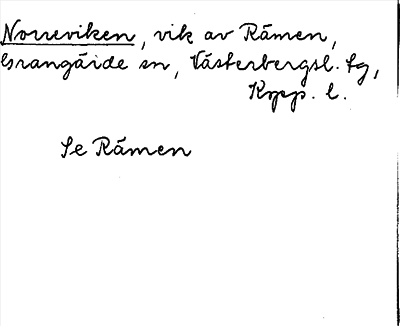 Norreviken, vik av Rämen,
Grangärde sn, Västerbergsl. fg,
Kopp. l.
Se Rämen